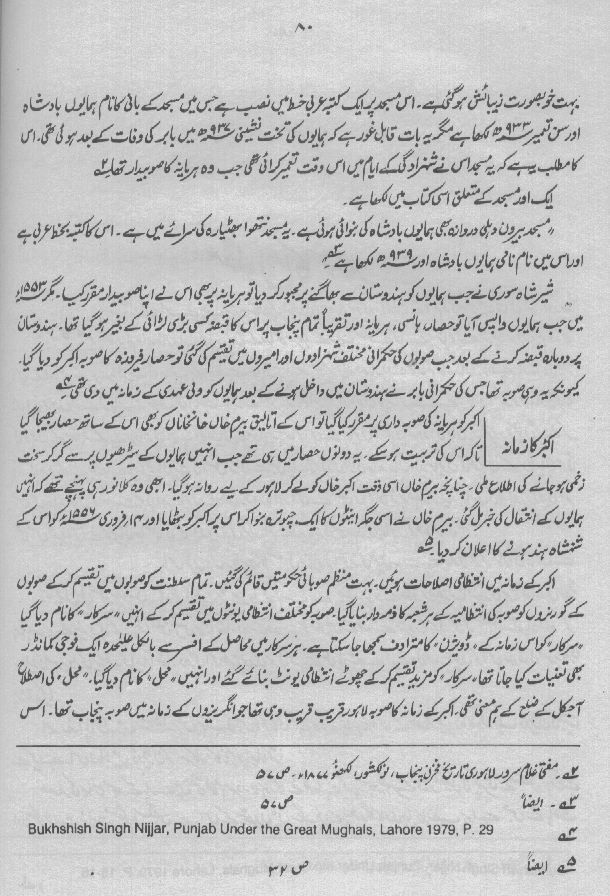 ۸۰
بہت خوبصورت زیبائش ہو گئی ہے۔ اس مسجد پر ایک کتبہ عربی خط میں نصب ہے جس میں مسجد کے بانی کا نام ہمایوں بادشاہ
اور سن تعمیر ۹۳۳ھ لکھا ہے مگر یہ بات قابل غور ہے کہ ہمایوں کی تخت نشینی ۹۳۷ھ میں بابر کی وفات کے بعد ہوئی تھی۔ اس
کا مطلب یہ ہے کہ یہ مسجد اس نے شہزادگی کے ایام میں اس وقت تعمیر کرائی تھی جب وہ ہریانہ کا صوبیدار تھا۔ ۲ے
ایک اور مسجد کے متعلق اسی کتاب میں لکھا ہے۔
"مسجد بیرون دہلی دروازہ بھی ہمایوں بادشاہ کی بنوائی ہوئی ہے۔ یہ مسجد نتھوا بھٹیارہ کی سرائے میں ہے۔ اس کا کتبہ بخط عربی ہے
اور اس میں نام نامی ہمایوں بادشاہ اور ۹۳۹ھ لکھا ہے ۳ے
شیر شاہ سوری نے جب ہمایوں کو ہندوستان سے بھاگنے پر مجبور کر دیا تو ہریانہ پر بھی اس نے اپنا صوبیدار مقرر کیا۔ مگر ۱۵۵۳ء
میں جب ہمایوں واپس آیا تو حصار، ہانسی، ہریانہ اور تقریباً تمام پنجاب پر اس کا قبضہ کسی بڑی لڑائی کے بغیر ہو گیا تھا۔ ہندوستان
پر دوبارہ قبضہ کرنے کے بعد جب صوبوں کی حکمرانی مختلف شہزادوں اور امیروں میں تقسیم کی گئی تو حصار فیروزہ کا صوبہ اکبر کو دیا گیا۔
کیونکہ یہ وہی صوبہ تھا جس کی حکمرانی بابر نے ہندوستان میں داخل ہونے کے بعد ہمایوں کو ولی عہدی کے زمانہ میں دی تھی ۴ے
اکبر کا زمانہ
اکبر کو ہریانہ کی صوبہ داری پر مقرر کیا گیا تو اس کے اتالیق بیرم خاں خانخاناں کو بھی اس کے ساتھ حصار بھیجا گیا
تاکہ اس کی تربیت ہو سکے۔ یہ دونوں حصار میں ہی تھے جب انہیں ہمایوں کے سیڑھیوں پر سے گر کر سخت
زخمی ہو جانے کی اطلاع ملی۔ چنانچہ بیرم خاں اسی وقت اکبر خاں کو لے کر لاہور کے لیے روانہ ہو گیا۔ ابھی وہ کلانور ہی پہنچے تھے کہ انہیں
ہمایوں کے انتقال کی خبر مل گئی۔ بیرم خاں نے اسی جگہ اینٹوں کا ایک چبوترہ بنوا کر اس پر اکبر کو بٹھایا اور ۱۴؍فروری ۱۵۵۶ء کو اس کے
شہنشاہ ہند ہونے کا اعلان کر دیا۔ ۵ے
اکبر کے زمانہ میں انتظامی اصلاحات ہوئیں۔ بہت منظم صوبائی حکومتیں قائم کی گئیں۔ تمام سلطنت کو صوبوں میں تقسیم کر کے صوبوں
کے گورنروں کو صوبہ کی انتظامیہ کے ہر شعبہ کا ذمہ دار بنایا گیا۔ صوبہ کو مختلف انتظامی یونٹوں میں تقسیم کر کے انہیں "سرکار" کا نام دیا گیا
"سرکار" کو اس زمانہ کے "ڈویژن" کا مترادف سمجھا جا سکتا ہے۔ ہر سرکار میں محاصل کے افسر سے بالکل علیٰحدہ ایک فوجی کمانڈر
بھی تعنیات کیا جاتا تھا، "سرکار" کو مزید تقسیم کر کے چھوٹے انتظامی یونٹ بنائے گئے اور انہیں "محل" کا نام دیا گیا۔ "محل" کی اصطلاح
آجکل کے ضلع کے ہم معنی تھی۔ اکبر کے زمانہ کا صوبہ لاہور قریب قریب وہی تھا جو انگریزوں کے زمانہ میں صوبہ پنجاب تھا۔ اس
۲ے۔ مفتی غلام سرور لاہوری تاریخ مخزن پنجاب، نولکشور، لکھنؤ ۱۸۷۷ء۔ ص ۵۷
۳ے۔ ایضاً ص ۵۷
۴ے Bukhshish Singh Nijjar, Punjab Under the Great Mughals, Lahore 1979, P. 29
۵ے ایضاً ص ۳۲